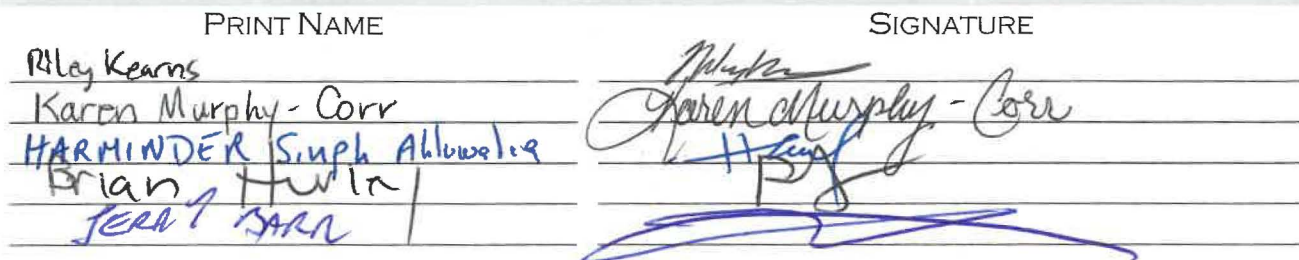 PRINT NAME SIGNATURE
Riley Kearns
Karen Murphy - Corr Karen Murphy - Corr
HARMINDER Singh Ahluwalia
Brian
JERRY BARR